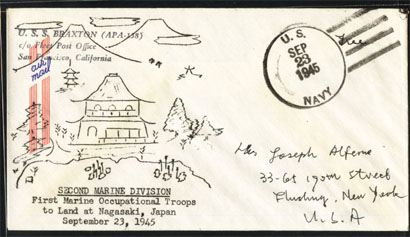 U. S. S. BRAXTON (APA-138)
c/o Fleet Post Office
San Francisco, California
air
mail
U. S.
SEP
23
1945
NAVY
Free
SECOND MARINE DIVISION
First Marine Occupational Troops
to Land at Nagasaki, Japan
September 23, 1945
Joseph Alferno
33-61 190th Street
Flushing, New York
U. S. A